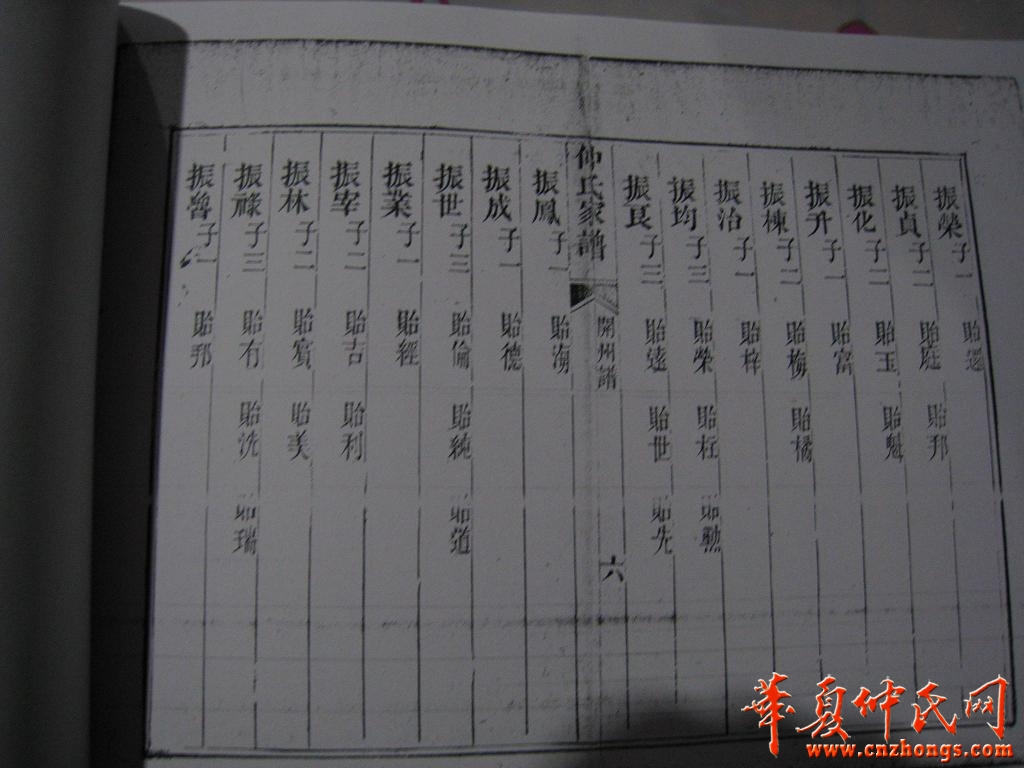 振榮 子一 貽還
振貞 子二 貽庭 貽邦
振化 子二 貽玉 貽魁
振升 子一 貽富
振棟 子二 貽梅 貽橘
振治 子一 貽梓
振均 子三 貽榮 貽枉 貽勲
振艮 子三 貽遠 貽世 貽先
仲氏家譜 開州譜 六
振鳳 子一 貽湖
振成 子一 貽德
振世 子三 貽倫 貽純 貽道
振業 子一 貽經
振宰 子二 貽吉 貽利
振林 子二 貽賓 貽美
振祿 子三 貽有 貽洗 貽瑞
振魯 子一 貽邦
華夏仲氏网
www.cnzhongs.com